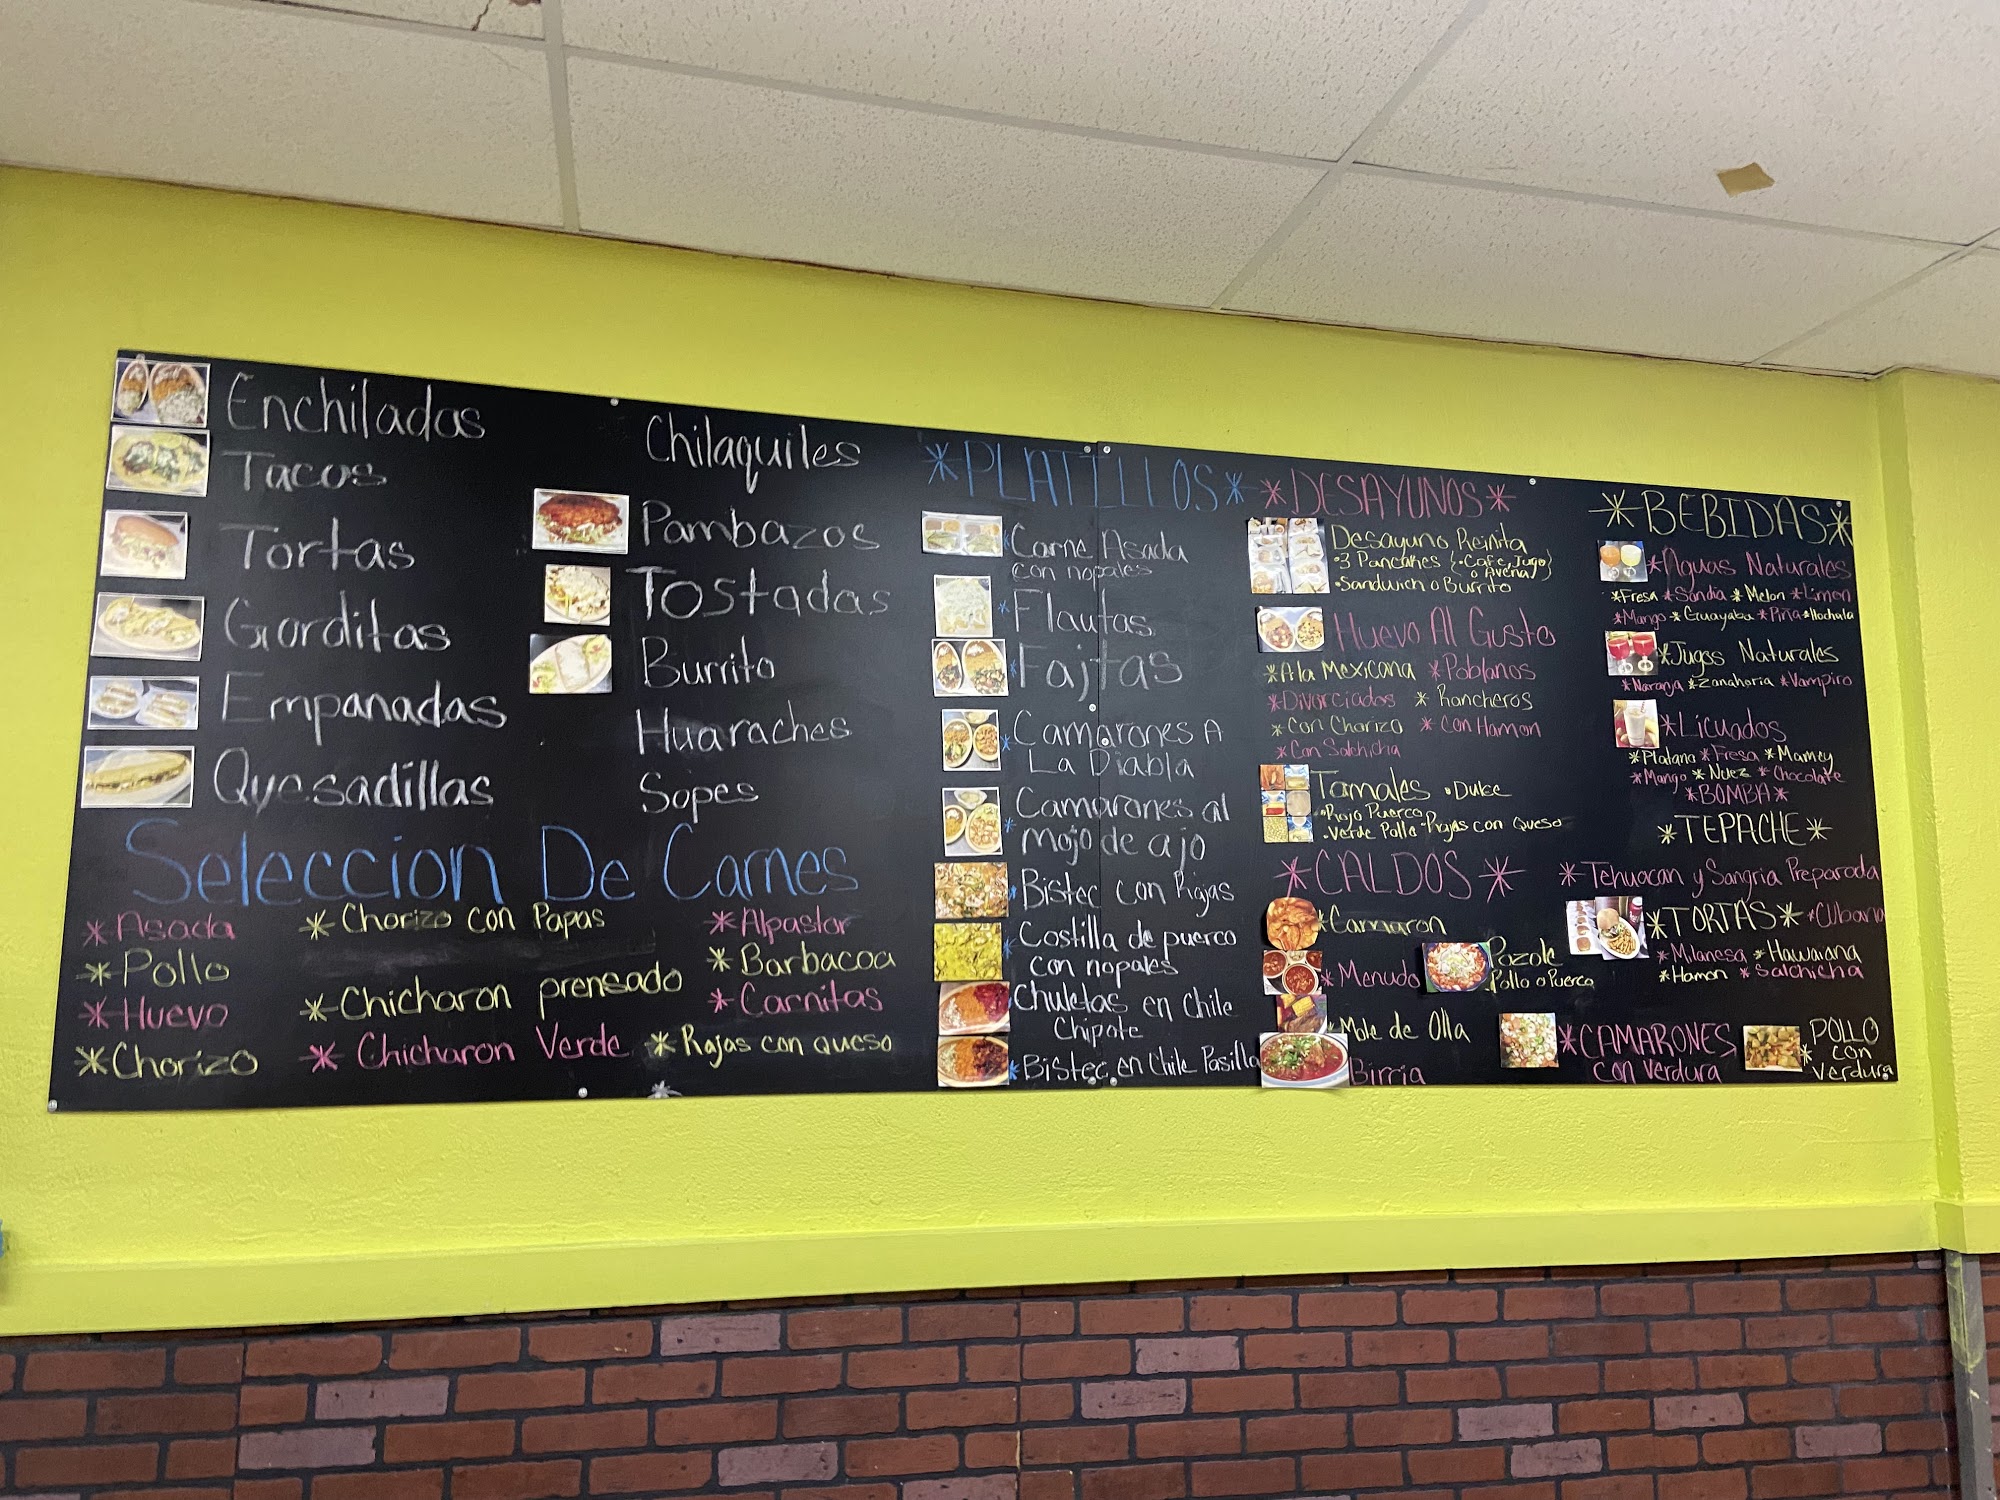 Enchiladas
Tacos
Tortas
Gorditas
Empanadas
Quesadillas
Chilaquiles
Pambazos
Tostadas
Burrito
Huaraches
Sopes
Seleccion De Carnes
*Asada
*Pollo
*Huevo
*Chorizo
*Chorizo con Papas
*Chicharon prensado
*Chicharon Verde
*Alpastor
*Barbacoa
*Carnitas
*Rajas con queso
*PLATILLOS*
*Carne Asada
con nopales
*Flautas
*Fajtas
*Camarones A
La Diabla
*Camarones al
Mojo de ajo
*Bistec con Rajas
*Costilla de puerco
con nopales
*Chuletas en Chile
Chipote
*Bistec en Chile Pasilla
*DESAYUNOS*
Desayuno Reinita
•3 Pancakes {•Cafe, Jugo
o Avena}
•Sandwich o Burrito
Huevo Al Gusto
*A la Mexicana *Poblanos
*Divorciados *Rancheros
*Con Chorizo *Con Hamon
*Con Salchicha
Tamales •Dulce
•Rojo Puerco
•Verde Pollo •Rajas con Queso
*CALDOS*
*Camaron
*Menudo
Pozole
•Pollo o Puerco
*Mole de Olla
Birria
*BEBIDAS*
*Aguas Naturales
*Fresa *Sandia *Melon *Limon
*Mango *Guayaba *Piña *Hochata
*Jugos Naturales
*Naranja *Zanahoria *Vampiro
*Licuados
*Platano *Fresa *Mamey
*Mango *Nuez *Chocolate
*BOMBA*
*TEPACHE*
*Tehuacan y Sangria Preparada
*TORTAS* *Cubana
*Milanesa *Hawaiana
*Hamon *Salchicha
*CAMARONES
con verdura
*POLLO
con
verdura